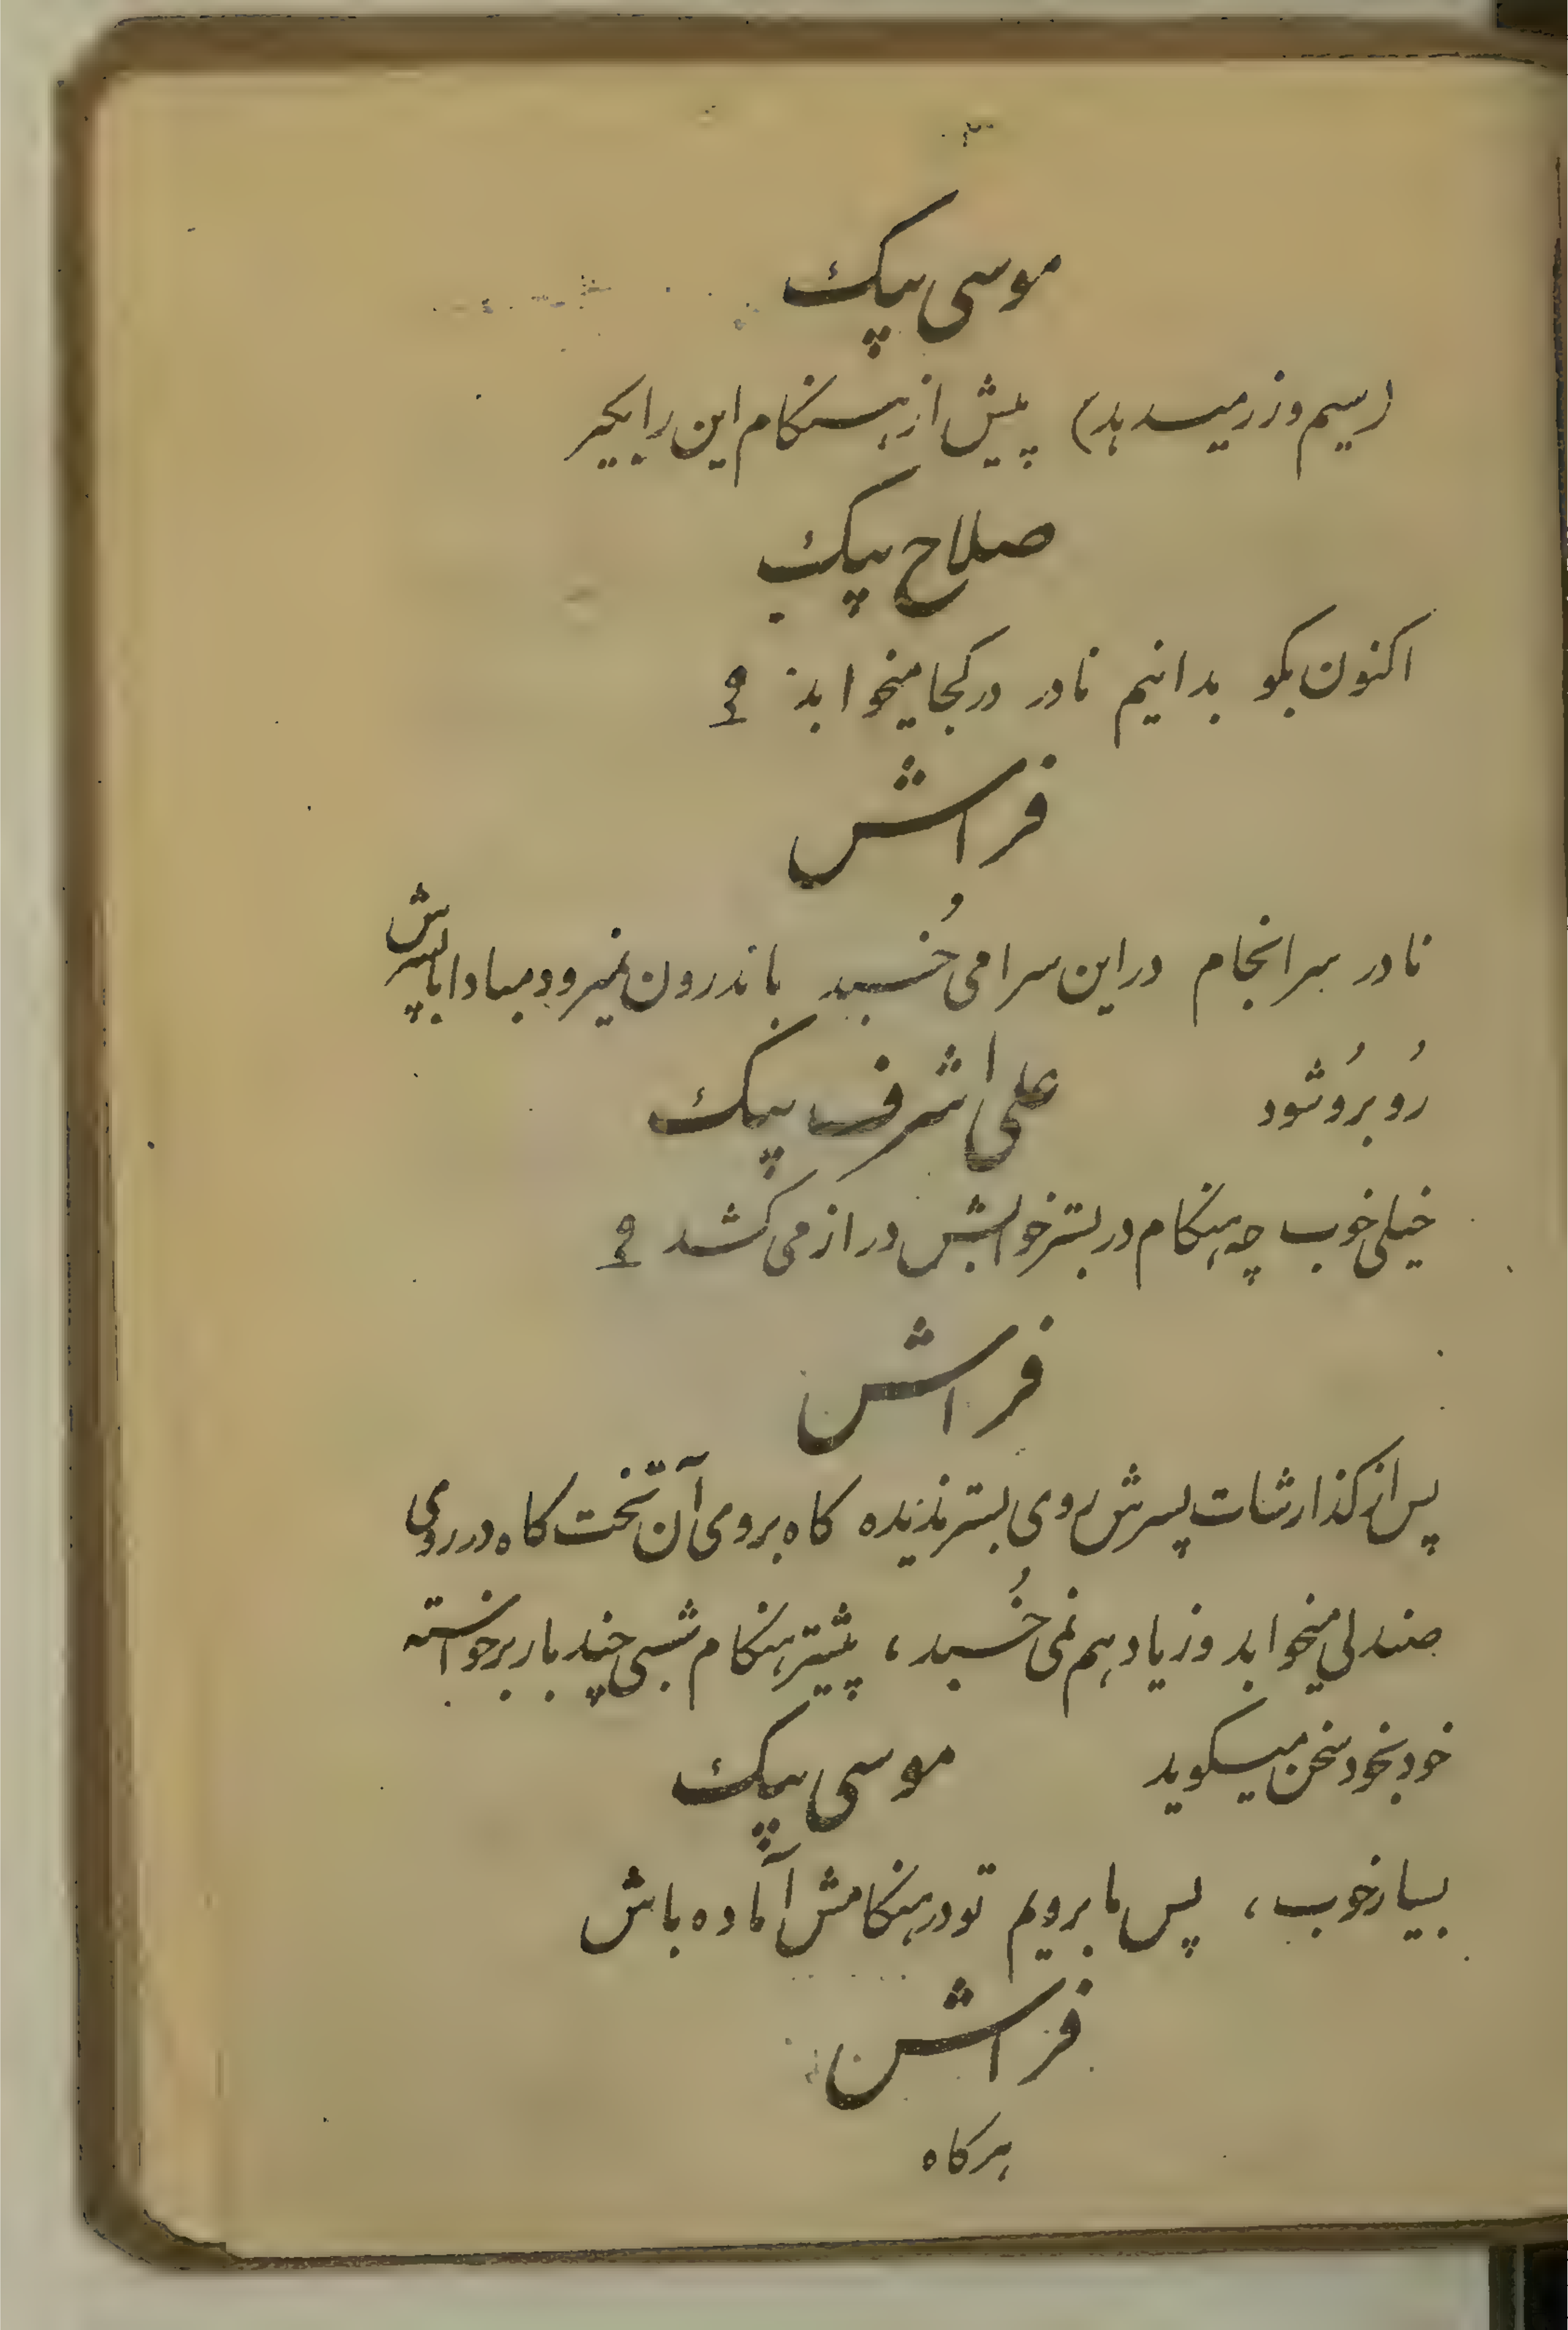 موسی بیک
(سیم و زر میدهد) پیش از هنکام این را بکیر
صلاح بیک
اکنون بکو بدانیم نادر در کجا میخوابد ؟
فراش
نادر سرانجام در این سرا می خُسبد باندرون نمیرود مبادا با پسرش
رُوبرُو شود
علی اشرف بیک
خیلی خوب چه هنکام در بستر خوابش دراز می کشد ؟
فراش
پس از کذارشات پسرش روی بستر ندیده کاه بروی آن تخت کاه در روی
صندلی میخوابد و زیاد هم نمی خُسبد ، بیشتر هنکام شبی چند بار برخواسته
خود بخود سخن میکوید
موسی بیک
بسیار خوب ، پس ما برویم تو در هنکامش آماده باش
فراش
هرکاه